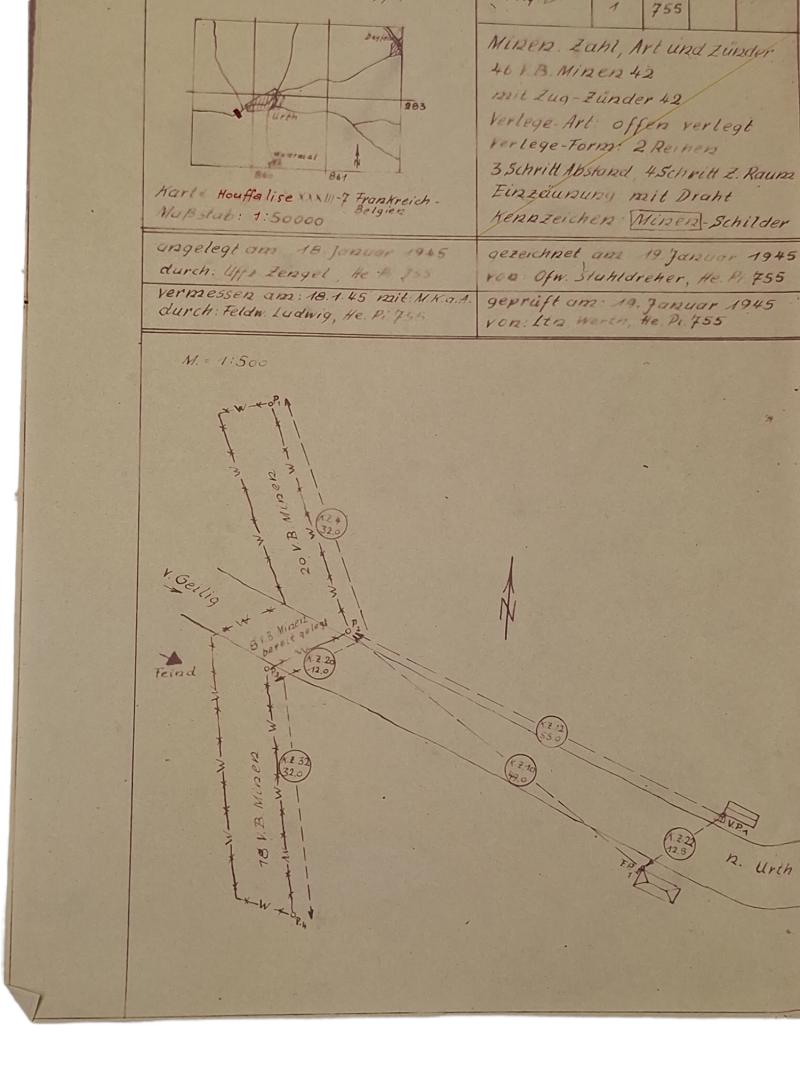 1
755
Minen. Zahl, Art und Zünder
46 V.B. Minen 42
mit Zug-Zünder 42
Verlege-Art: offen verlegt
Verlege-Form: 2 Reihen
3 Schritt Abstand, 4 Schritt Z. Raum
Einzäunung mit Draht
Kennzeichen: Minen-Schilder
283
Urth
861
N
Karte Houffalise XXXIII-7 Frankreich-
Belgien
Maßstab: 1:50000
angelegt am 18. Januar 1945
durch: Uffz Zengel, He. Pi 755
gezeichnet am 19 Januar 1945
von Ofw. Stuhldreher, He. Pi 755
vermessen am: 18.1.45 mit: M.K.a.A.
durch: Feldw. Ludwig, He. Pi 755
geprüft am: 19. Januar 1945
von: Ltn Werth, He. Pi 755
M. = 1:500
W
P1
W
W
20 V.B. Minen
K.Z. 4
32.0
W
W
W
v. Geilig
N
8 V.B. Minen
bereit gelegt
P2
W
W
K.Z. 20
12.0
Feind
P3
W
W
K.Z. 32
32.0
18 V.B. Minen
W
W
W
W
P.4
K.Z. 12
55.0
K.Z. 10
V.P. 1
K.Z. 22
12.5
F.P.
1
n. Urth